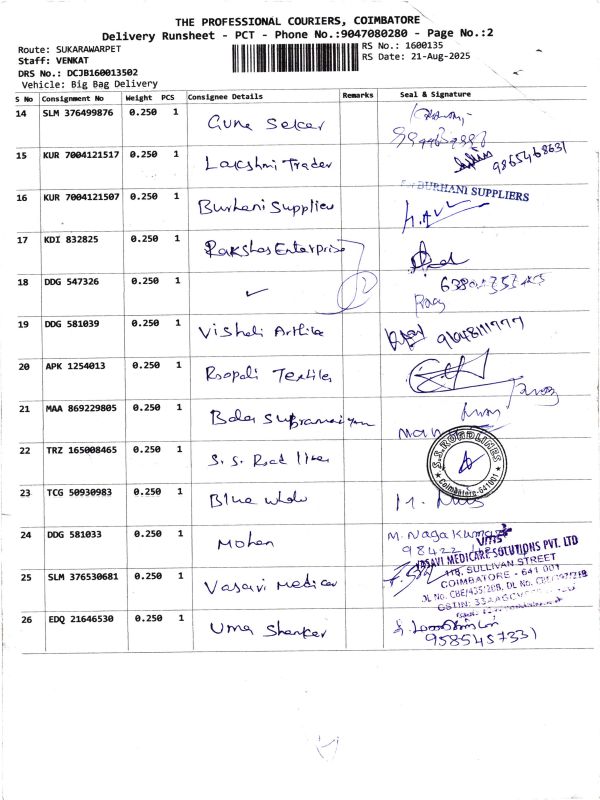 THE PROFESSIONAL COURIERS, COIMBATORE
Delivery Runsheet - PCT - Phone No.:9047080280 - Page No.:2
Route: SUKARAWARPET
RS No.: 1600135
Staff: VENKAT
RS Date: 21-Aug-2025
DRS No.: DCJB160013502
Vehicle: Big Bag Delivery
S No Consignment No Weight PCS Consignee Details Remarks Seal & Signature
14 SLM 376499876 0.250 1 Guna Sekar
15 KUR 7004121517 0.250 1 Lakshmi Trader 9865468631
16 KUR 7004121507 0.250 1 Burhani Supplier BURHANI SUPPLIERS
17 KDI 832825 0.250 1 Rakshas Enterprise
18 DDG 547326 0.250 1 ✓
19 DDG 581039 0.250 1 Vishali 9648111777
20 APK 1254013 0.250 1 Roopali Textiles
21 MAA 869229805 0.250 1 Bala
22 TRZ 165008465 0.250 1 S.S. Road lines S.S. ROADLINES Coimbatore-641001
23 TCG 50930983 0.250 1 Blue
24 DDG 581033 0.250 1 Mohan M. Naga Kumar
98422
25 SLM 376530681 0.250 1 Vasavi Medicar VASAVI MEDICARE SOLUTIONS PVT. LTD
118, SULLIVAN STREET
COIMBATORE - 641 001
26 EDQ 21646530 0.250 1 Uma Shanker
9585457331